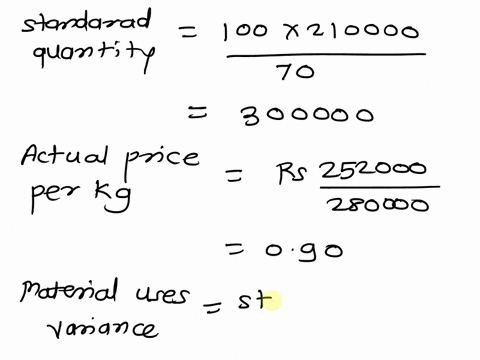 standarad
quantity = 100 x 210000 / 70
= 300000
Actual price
per kg = Rs 252000 / 280000
= 0.90
Material uses
variance = st